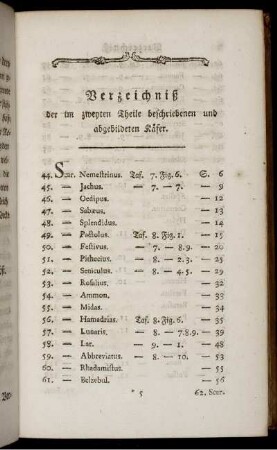 Verzeichniß
der im zweyten Theile beschriebenen und
abgebildeten Käfer.
44. Scar. Nemestrinus. Taf. 7. Fig. 6. S. 6
45. — Jachus. — 7. — 7. — 9
46. — Oedipus. — 12
47. — Sabæus. — 13
48. — Splendidus. — 14
49. — Pactolus. Taf. 8. Fig. 1. — 15
50. — Festivus. — 7. — 8.9. — 20
51. — Pithecius. — 8. — 2.3. — 23
52. — Seniculus. — 8. — 4.5. — 29
53. — Rosalius. — 33
54. — Ammon. — 34
55. — Midas. — 34
56. — Hamadrias. Taf. 8. Fig. 6. — 35
57. — Lunaris. — 8. — 7.8.9. — 39
58. — Lar. — 9. — 1. — 48
59. — Abbreviatus. — 8. — 10. — 53
60. — Rhadamistus. — 55
61. — Belzebul. — 56
* 5 62. Scar.